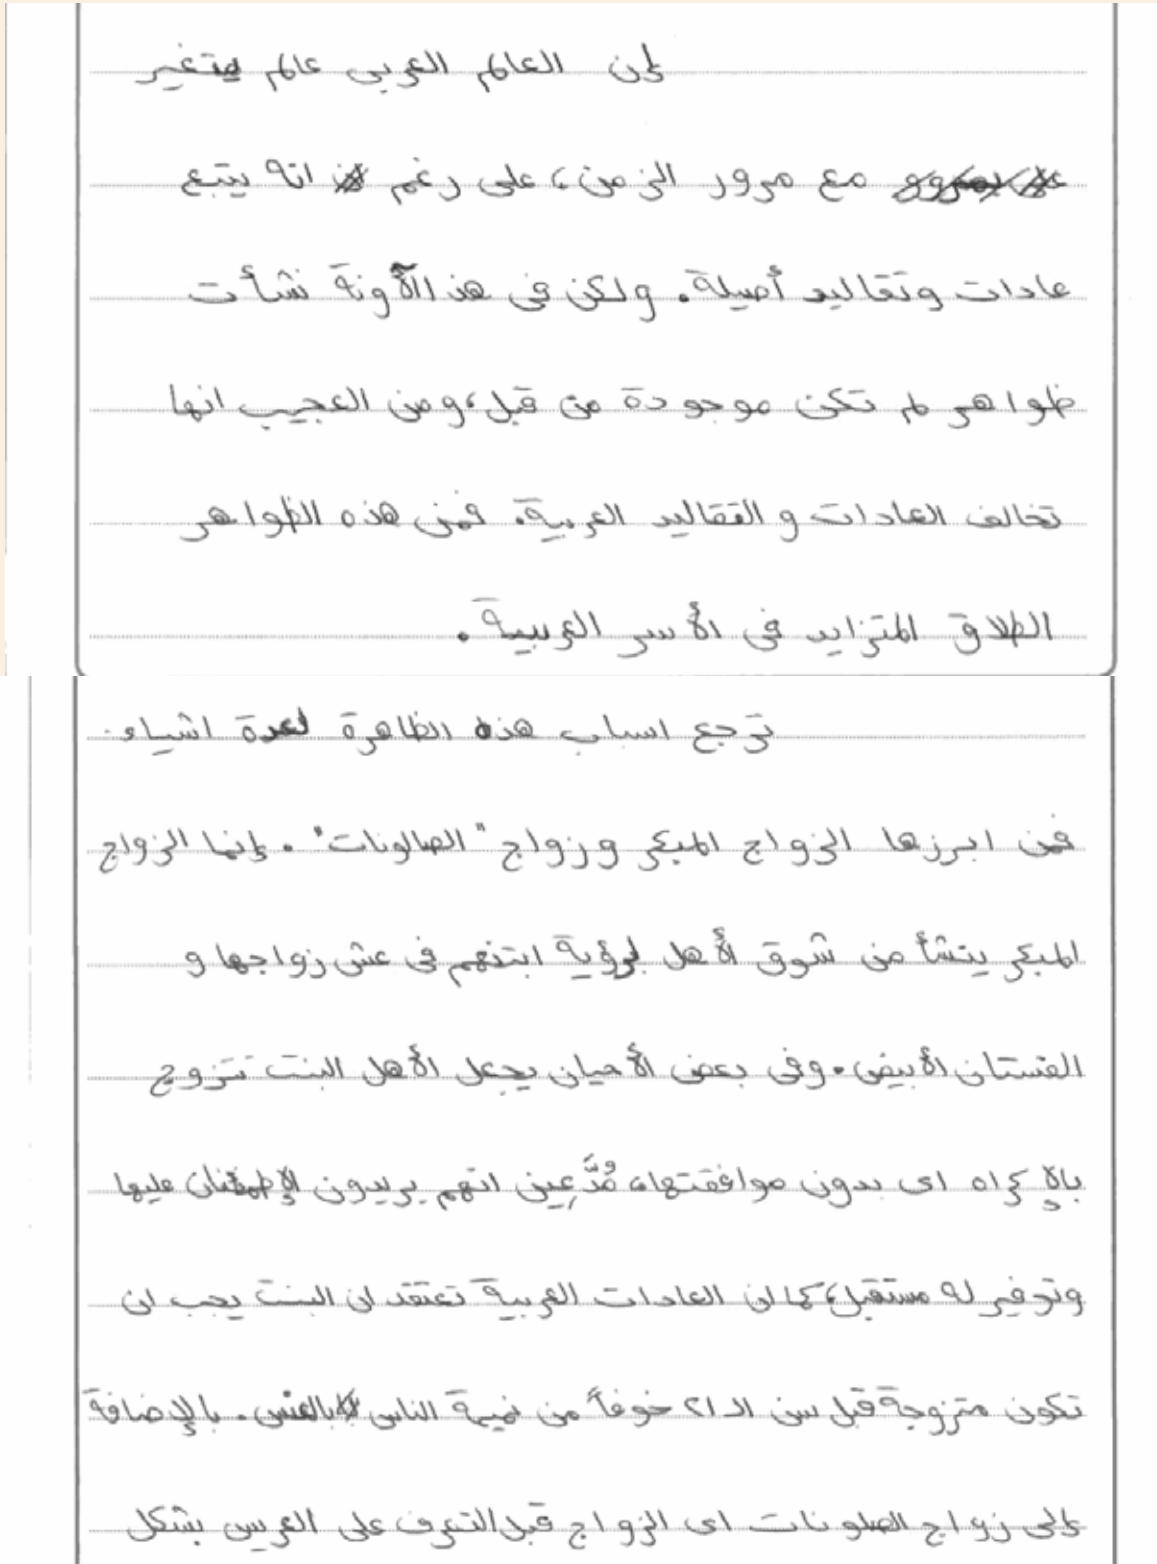 إن العالم العربى عالم متغير
مع مرور الزمن، على رغم انه يتبع
عادات وتقاليد أصيلة. ولكن فى هذا الآونة نشأت
ظواهر لم تكن موجودة من قبل، ومن العجيب انها
تخالف العادات و التقاليد العربية. فمن هذه الظواهر
الطلاق المتزايد فى الأسر العربية.
ترجع اسباب هذه الظاهرة لعدة اشياء.
فمن ابرزها الزواج المبكر وزواج "الصالونات". إنما الزواج
المبكر ينشأ من شوق الأهل لرؤية ابنتهم فى عش زواجها و
الفستان الأبيض. وفى بعض الأحيان يجعل الأهل البنت تتزوج
بالإكراه اى بدون موافقتها، مُدَّعِين انهم يريدون الإطمئنان عليها
وتوفير له مستقبل، كما ان العادات العربية تعتقد ان البنت يجب ان
تكون متزوجة قبل سن الـ ٢١ خوفاً من نميمة الناس بالعنس. بالإضافة
إلى زواج الصلونات اى الزواج قبل التعرف على العريس بشكل